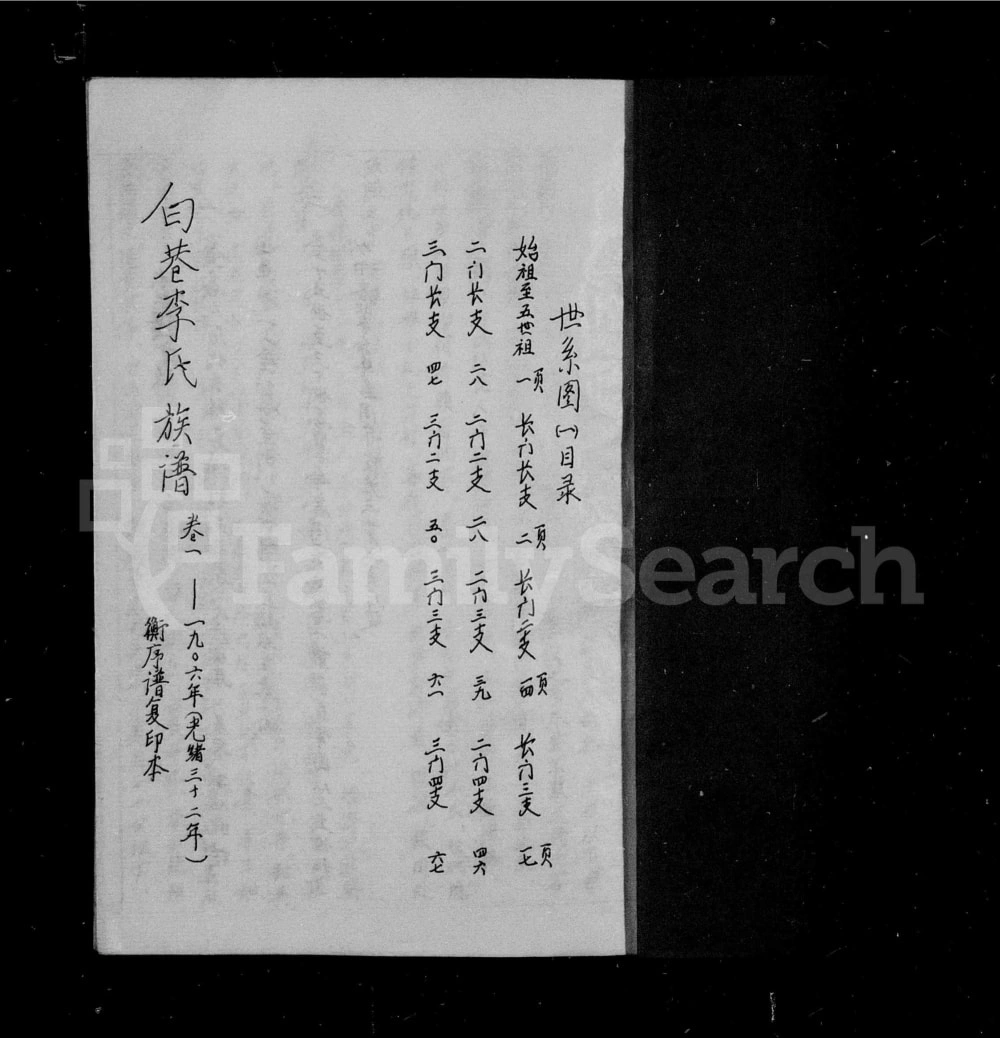 世系图(一)目录
始祖至五世祖 一页 长门长支 二页 长门二支 四页 长门三支 七页
二门长支 二八 二门二支 二八 二门三支 三九 二门四支 四六
三门长支 四七 三门二支 五〇 三门三支 六一 三门四支 六七
白巷李氏族谱 卷一 — 一九〇六年(光绪三十二年)
衡序谱复印本
FamilySearch